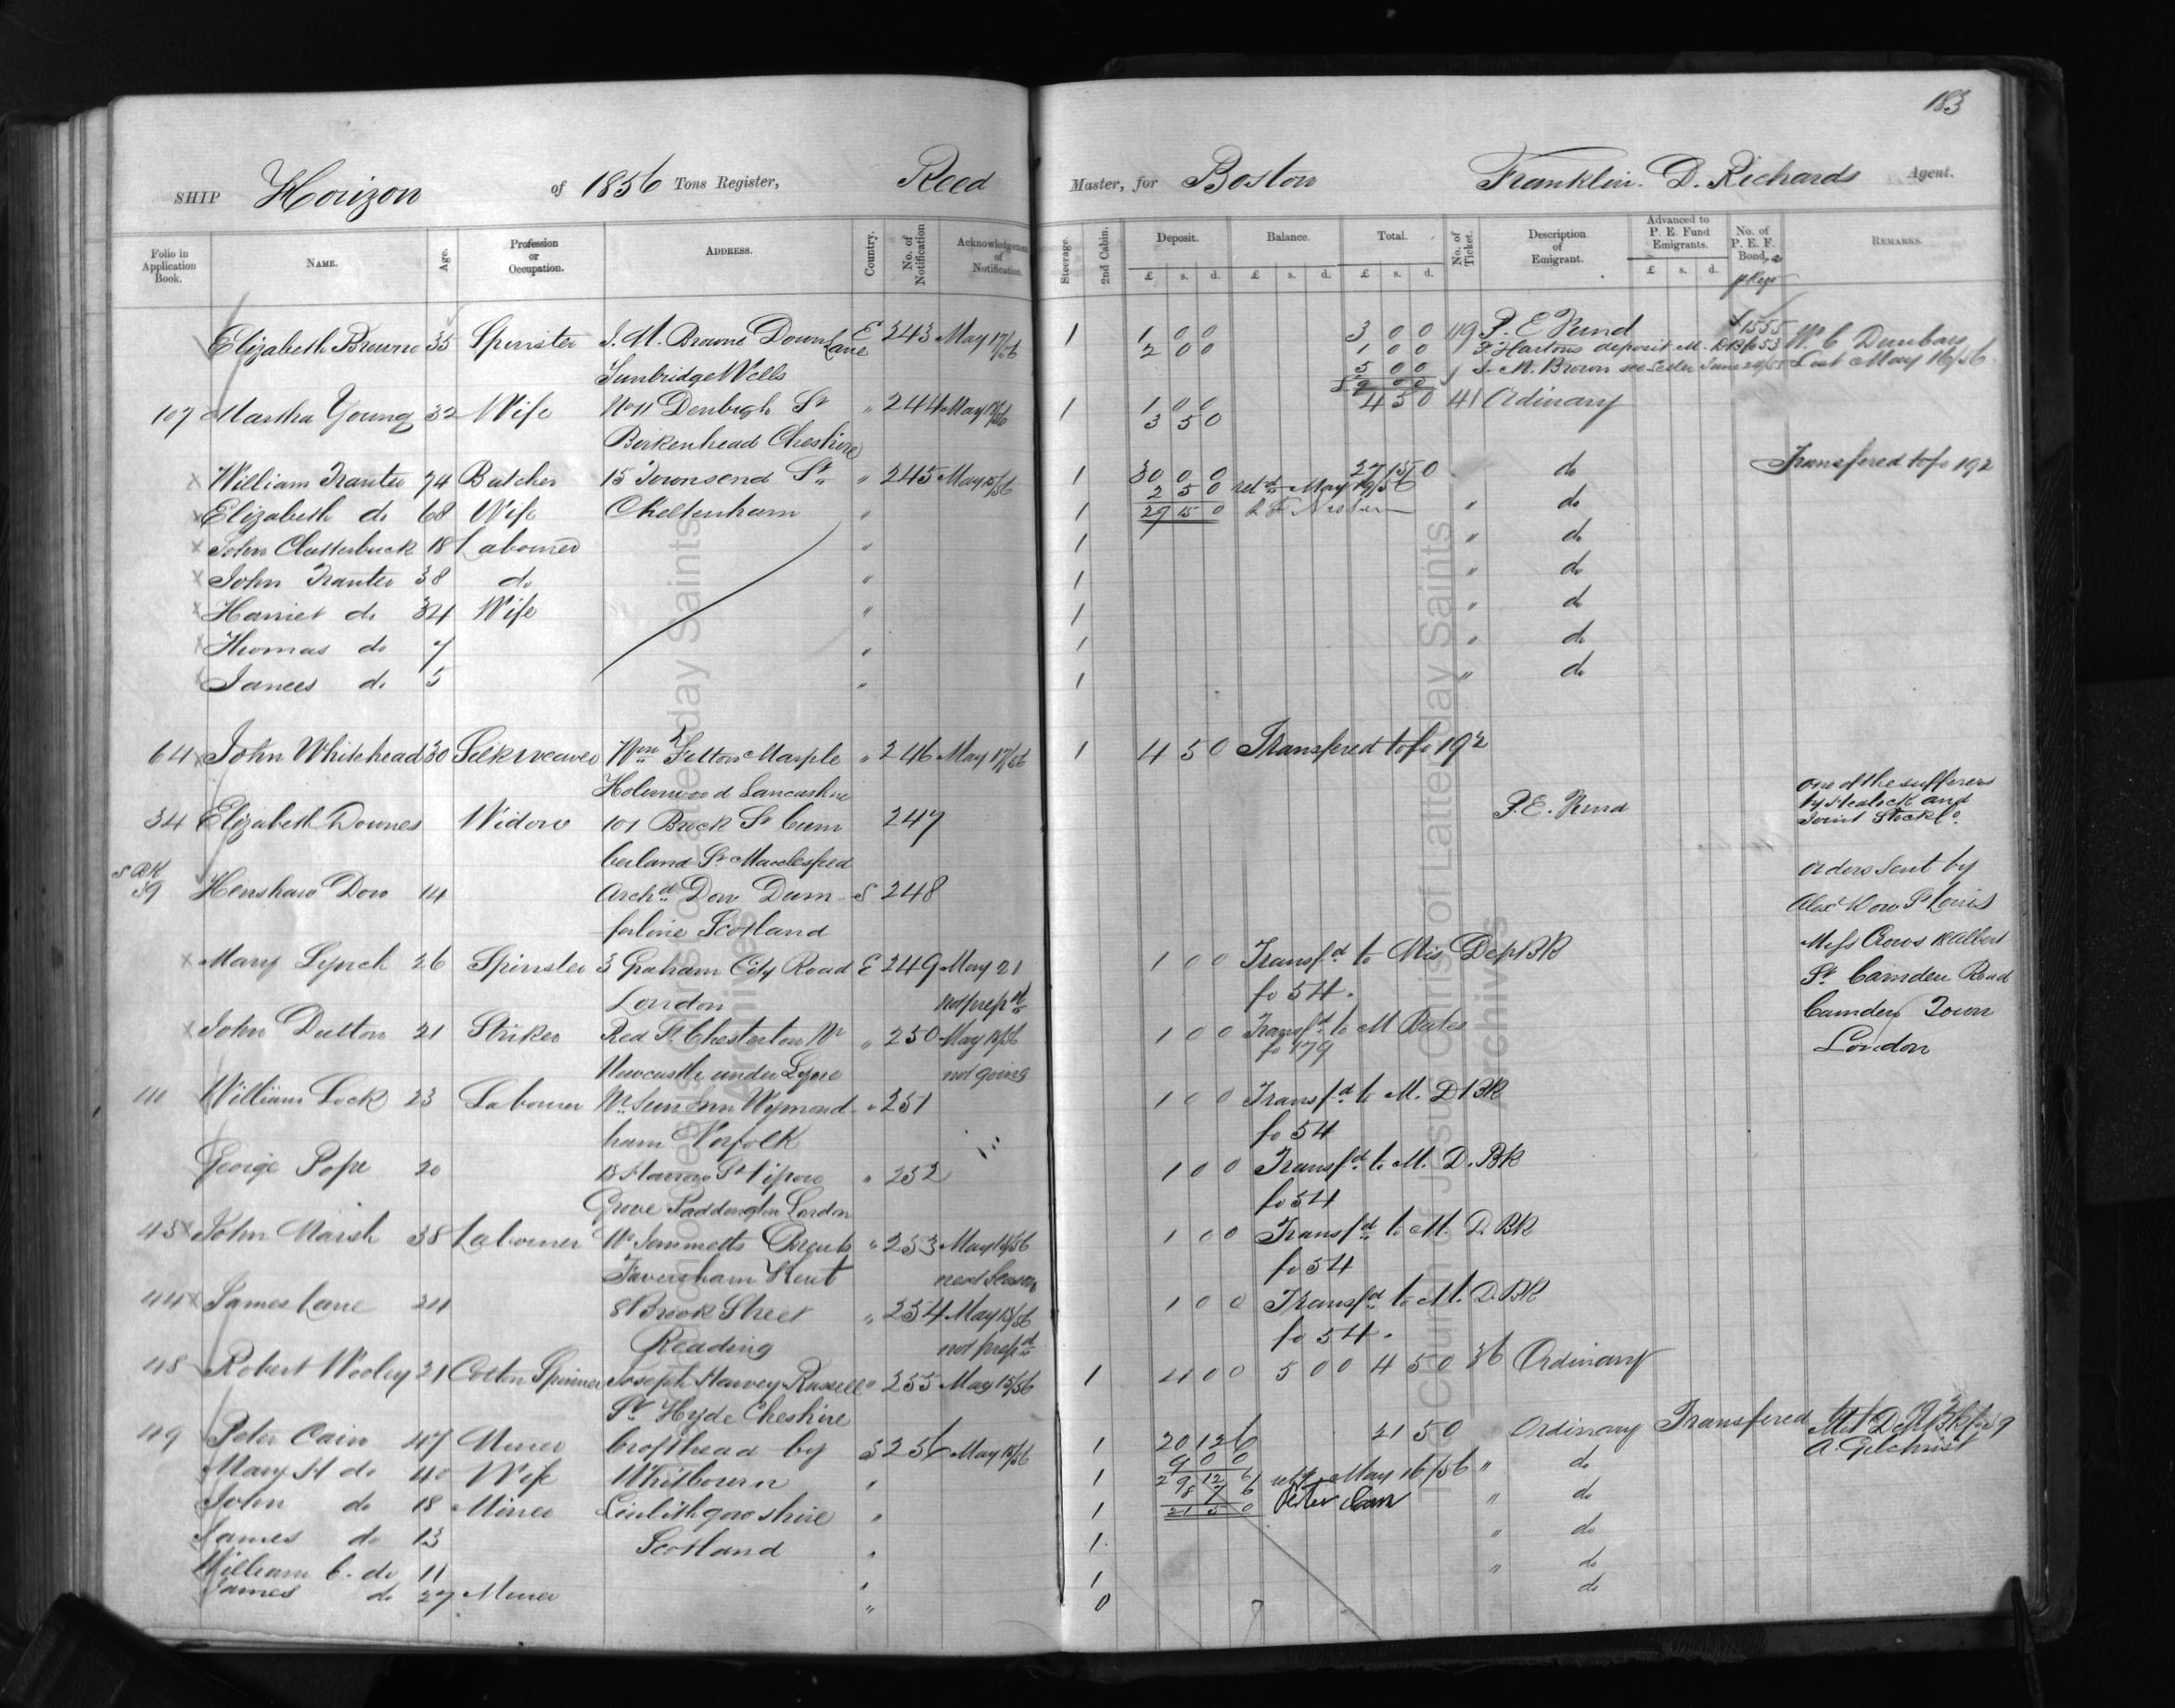 183
SHIP Horizon of 1856 Tons Register, Reed Master, for Boston Franklin. D. Richards Agent.
Folio in Application Book. NAME. Age. Profession or Occupation. ADDRESS. Country. No. of Notification Acknowledgement of Notification. Steerage. 2nd Cabin. Deposit. Balance. Total. No. of Ticket. Description of Emigrant. Advanced to P. E. Fund Emigrants. No. of P. E. F. Bond, REMARKS.
£ s. d. £ s. d. £ s. d. £ s. d.
Elizabeth Browne 35 Spinster J. M. Browne Down Lane E 243 May 17/56 1 1 0 0 3 0 0 119 P. E Fund 1555 W. C Dunbar
2 0 0 1 0 0 deposit M. Lost May 16/56
Tunbridge Wells 5 0 0 J. M. Brown see Letter June
9 0 0
107 Martha Young 32 Wife No 11 Denbigh St " 244 May 1 1 0 0 4 5 0 41 Ordinary
Birkenhead Cheshire 3 5 0
William Tranter 74 Butcher 15 Townsend St " 245 May 15/56 1 30 0 0 27 15 0 do Transfered to fo 192
2 5 0 May 19/56
Elizabeth do 68 Wife Cheltenham " 1 27 15 0 " do
John Clutterbuck 18 Labourer " 1 " do
John Tranter 38 do " 1 " do
Harriet do 34 Wife " 1 " do
Thomas do 7 " 1 " do
James do 5 " 1 " do
64 John Whitehead 30 Silkweaver Wm Fitton Marple " 246 May 17/56 1 4 5 0 Transfered to fo 192
Holinwood Lancashire
34 Elizabeth Downes Widow 101 Brock St Cum 247 P. E. Fund one of the sufferers
by and
Joint Stock Co.
berland St Macclesfield
S BK
39 Henshaw Dow 14 Archd Dow Dum S 248 orders sent by
Alex Dow St Louis
ferline Scotland
Mary Lynch 26 Spinster 3 Graham City Road E 249 May 21 1 0 0 Transfd to Mis Dep BK Miss Crows Albert
St Camden Road
London not prepd fo 54.
John Dutton 21 Striker Red St Chesterton Nr " 250 May 15/56 1 0 0 Transfd to M Bates Camden Town
fo 179 London
Newcastle under Lyme not going
William Lock 23 Labourer Nr Sun Inn Wymond " 251 1 0 0 Transfd to M. D BK
ham Norfolk fo 54
George Pope 20 St " 252 1 0 0 Transfd to M. D. BK
Grove Paddington London fo 54
45 John Marsh 38 Labourer " 253 May 1 0 0 Transfd to M. D. BK
Faversham Kent next Season fo 54
44 James Lane 24 8 Brook Street " 254 May 15/56 1 0 0 Transfd to M. D. BK
Reading not prepd fo 54.
48 Robert Wooley 21 Cotton Spinner Joseph Harvey Russell " 255 May 15/56 1 4 0 0 5 0 0 4 5 0 36 Ordinary
St Hyde Cheshire
49 Peter Cain 47 Miner Crofthead by S 256 May 15/56 1 20 12 6 21 5 0 Ordinary Transfered
A. Gilchrist
9 0 0
Mary H do 40 Wife Whitbourn " 1 29 12 6 May 16/56 " do
8 7 6 Peter Cain
John do 18 Miner Linlithgowshire " 1 21 5 0 " do
James do 13 Scotland " 1 " do
William C. do 11 " 1 " do
James do 27 Miner " 0 do
The Church of Jesus Christ of Latter-day Saints
Archives